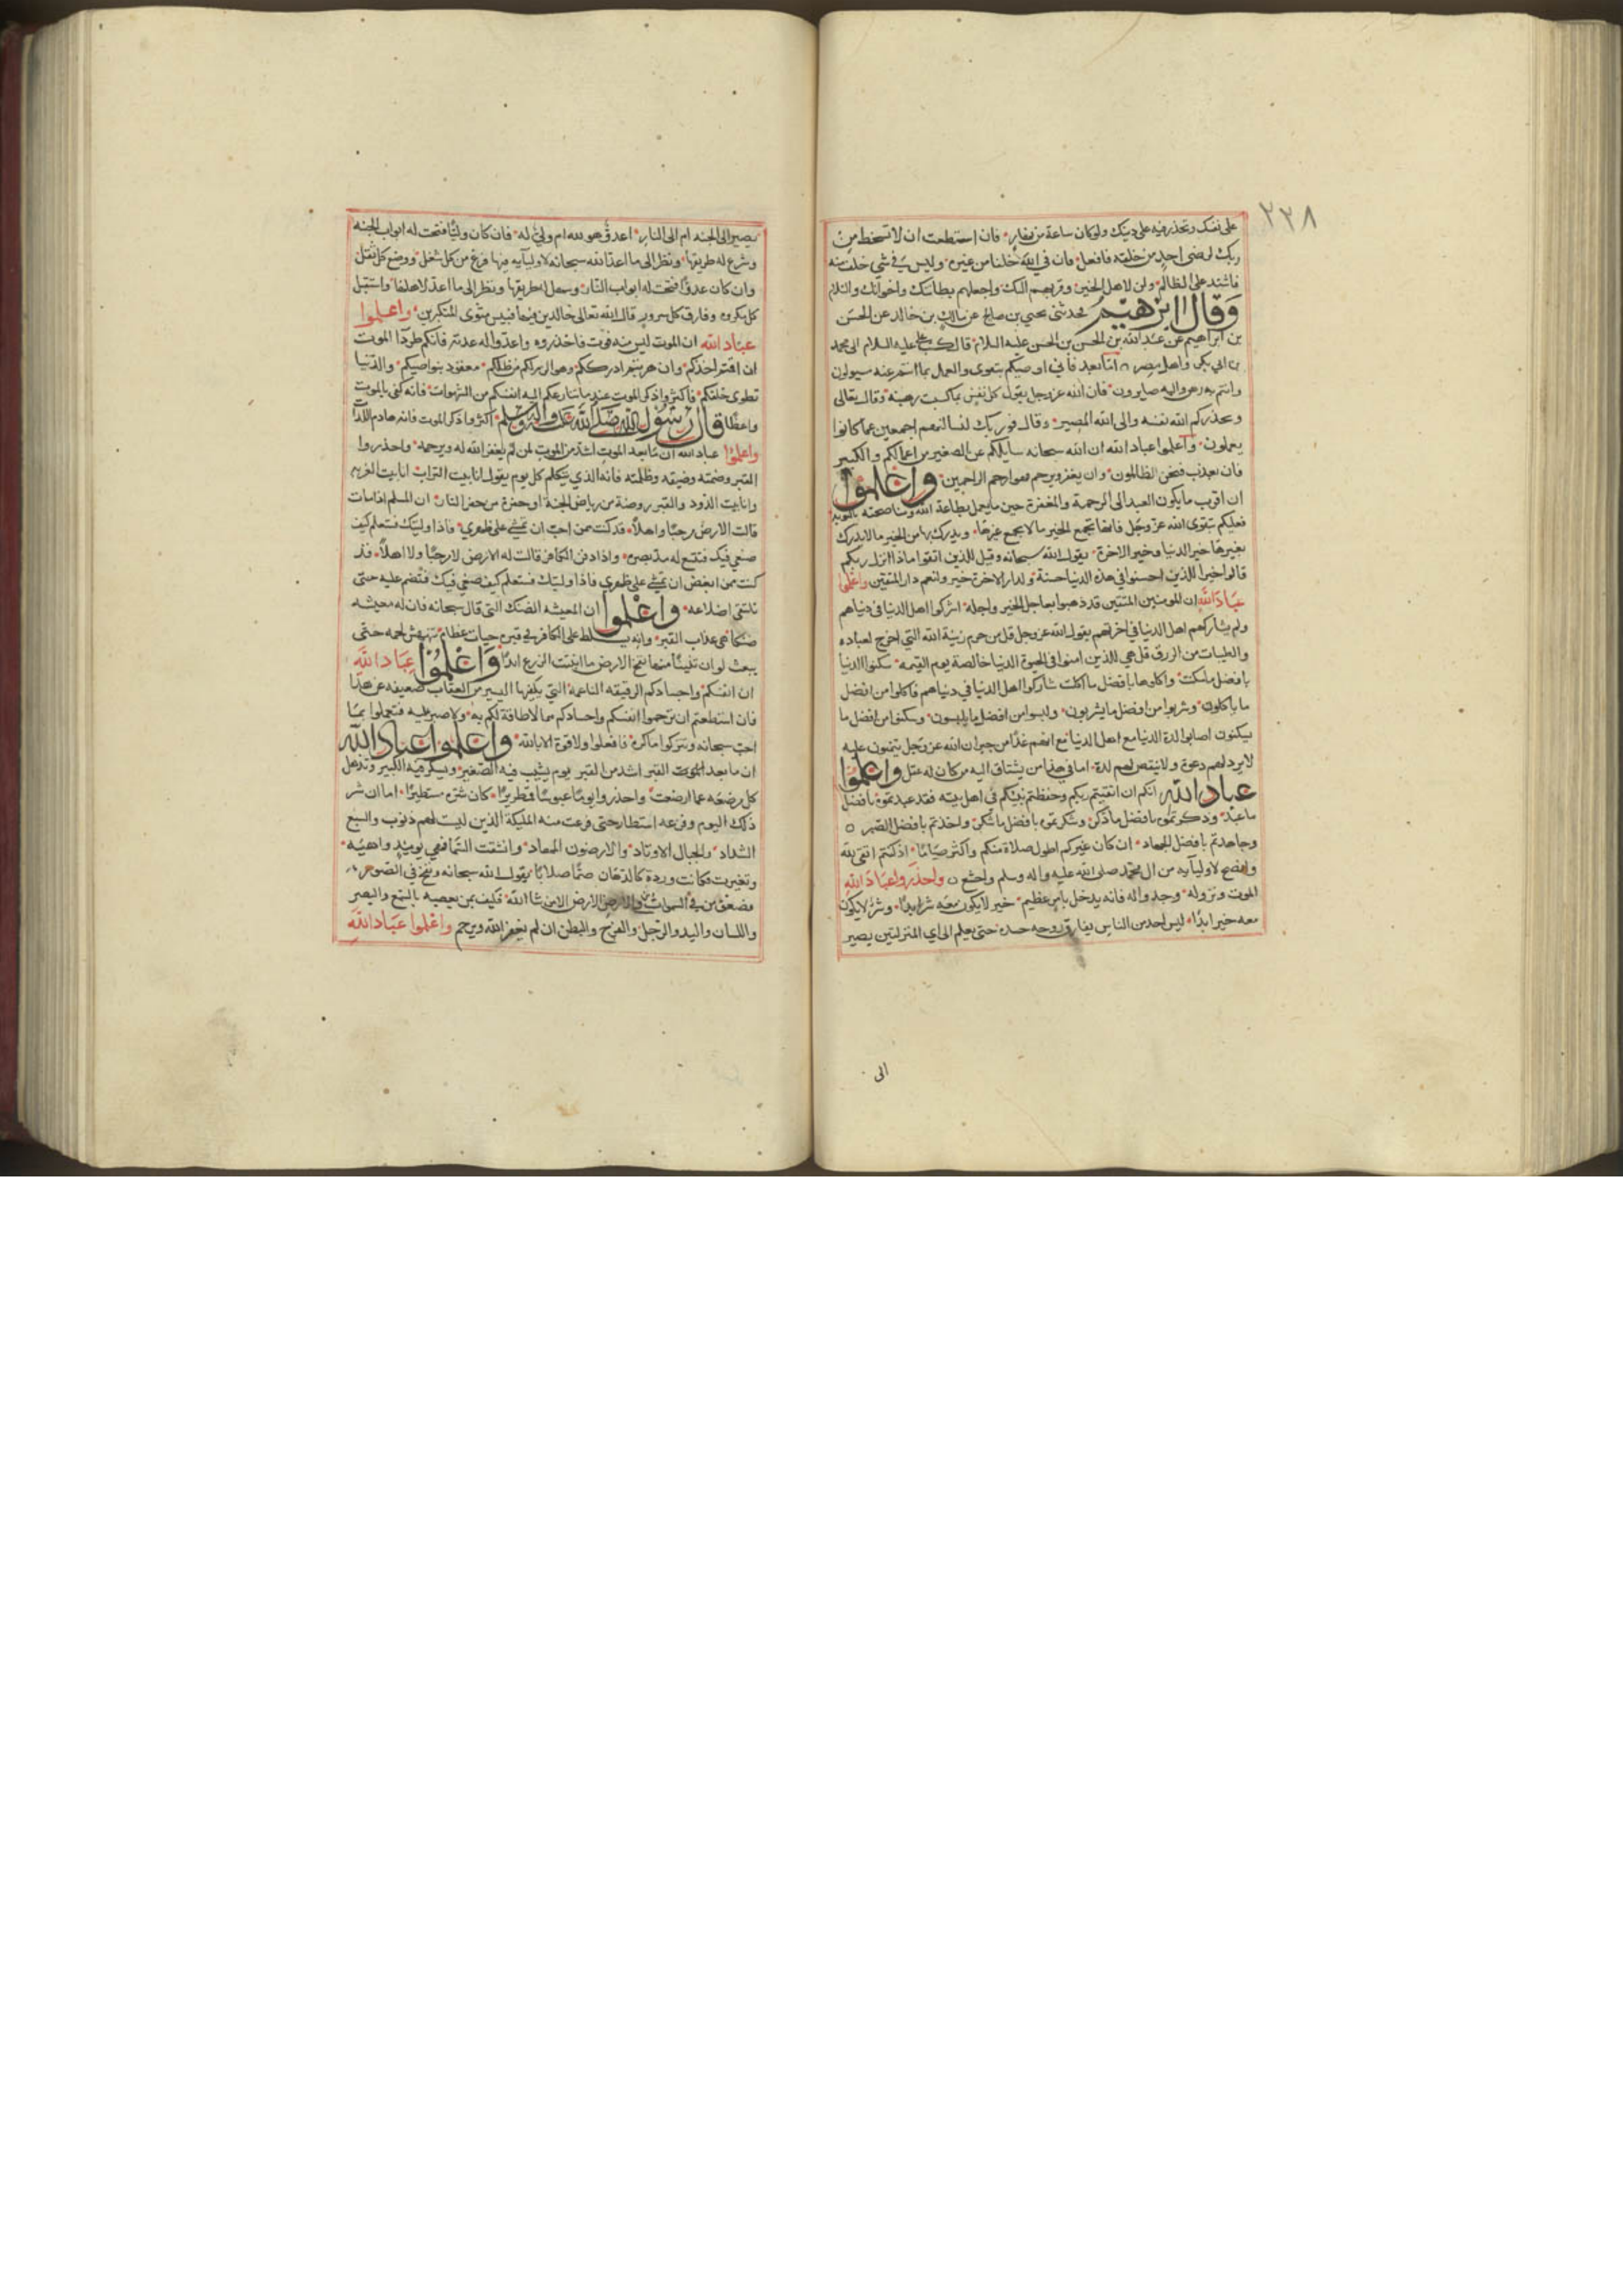 ٢٣٨
على نفسك وتحذر فيه على دينك ولو كان ساعة من نهار فان استطعت ان لا تسخط من
ربك لرضى احد من خلقه فافعل فان في الله خلفا من غيره وليس في شي خلف منه
فاشتد على الظالم ولن لاهل الخير وقربهم اليك واجعلهم بطانتك واخوانك والسلام
وقال ابرهيم حدثني يحيى بن صالح عن مالك بن خالد عن الحسن
بن ابراهيم عن عبد الله بن الحسن بن الحسن عليه السلام قال كتب علي عليه السلام الى محمد
بن ابي بكر واهل مصر اما بعد فاني اوصيكم بتقوى والعمل بما انتم عنه مسولون
وانتم به رهن واليه صايرون فان الله عز وجل يقول كل نفس بما كسبت رهينة وقال تعالى
ويحذركم الله نفسه والى الله المصير وقال فوربك لنسالنهم اجمعين عما كانوا
يعملون واعلموا عباد الله ان الله سبحانه سايلكم عن الصغير من اعمالكم والكبير
فان يعذب فنحن الظالمون وان يغفر ويرحم فهو ارحم الراحمين واعلموا
ان اقرب ما يكون العبد الى الرحمة والمغفرة حين ما يعمل بطاعة الله ومناصحته بالتوبة
فعليكم بتقوى الله عز وجل فانها تجمع الخير ما لا يجمع غيرها ويدرك بها من الخير ما لا يدرك
بغيرها خير الدنيا وخير الاخرة يقول الله سبحانه وقيل للذين اتقوا ماذا انزل ربكم
قالوا خيرا للذين احسنوا في هذه الدنيا حسنة ولدار الاخرة خير ولنعم دار المتقين واعلموا
عباد الله ان المومنين المتقين قد ذهبوا بعاجل الخير واجله اشركوا اهل الدنيا في دنياهم
ولم يشاركهم اهل الدنيا في اخرتهم يقول الله عز وجل قل من حرم زينة الله التي اخرج لعباده
والطيبات من الرزق قل هي للذين امنوا في الحيوة الدنيا خالصة يوم القيمة سكنوا الدنيا
بافضل ما سكنت واكلوها بافضل ما اكلت شاركوا اهل الدنيا في دنياهم فاكلوا من افضل
ما ياكلون وشربوا من افضل ما يشربون ولبسوا من افضل ما يلبسون وسكنوا من افضل ما
يسكنون اصابوا لذة الدنيا مع اهل الدنيا مع انهم غدا من جيران الله عز وجل يتمنون عليه
لا يرد لهم دعوة ولا ينقص لهم لذة اما في هذا من يشتاق اليه من كان له عقل واعلموا
عباد الله انكم ان اتقيتم ربكم وحفظتم نبيكم في اهل بيته فقد عبدتموه بافضل
ما عبد وذكرتموه بافضل ما ذكر وشكرتموه بافضل ما شكر واخذتم بافضل الصبر
وجاهدتم بافضل الجهاد ان كان غيركم اطول صلاة منكم واكثر صياما اذ كنتم اتقى لله
وانصح لاوليايه من ال محمد صلى الله عليه واله وسلم واخشع واحذروا عباد الله
الموت ونزوله وخذوا له فانه يدخل بامر عظيم خير لا يكون معه شر ابدا وشر لا يكون
معه خير ابدا ليس احد من الناس يفارق روحه جسده حتى يعلم الى اي المنزلتين يصير
الى
يصير الى الجنه ام الى النار اعدو هو لله ام ولي له فان كان وليا فتحت له ابواب الجنه
وشرع له طريقها ونظر الى ما اعد الله سبحانه لاوليايه فيها فرغ من كل شغل ووضع كل ثقل
وان كان عدوا فتحت له ابواب النار وسهل طريقها ونظر الى ما اعد لاهلها واستقبل
كل مكروه وفارق كل سرور قال الله تعالى خالدين فيها فبيس مثوى المتكبرين واعلموا
عباد الله ان الموت ليس منه فوت فاحذروه واعدوا له عدته فانكم طرداء الموت
ان اقمتم اخذكم وان هربتم ادرككم وهو الزم لكم من ظلكم معقود بنواصيكم والدنيا
تطوى خلفكم فاكثروا ذكر الموت عند ما تنازعكم اليه انفسكم من الشهوات فانه كفى بالموت
واعظا قال رسول الله صلى الله عليه واله وسلم اكثروا ذكر الموت فانه هادم اللذات
واعلموا عباد الله ان ما بعد الموت اشد من الموت لمن لم يغفر الله له ويرحمه واحذروا
القبر وضمته وضيقه وظلمته فانه الذي يتكلم كل يوم يقول انا بيت التراب انا بيت الغربه
وانا بيت الدود والقبر روضة من رياض الجنة او حفرة من حفر النار ان المسلم اذا مات
قالت الارض مرحبا واهلا قد كنت ممن احب ان تمشي على ظهري فاذا وليتك فستعلم كيف
صنعي فيك فتتسع له مد بصره واذا دفن الكافر قالت له الارض لا مرحبا ولا اهلا قد
كنت ممن ابغض ان تمشي على ظهري فاذا وليتك فستعلم كيف صنعي فيك فتنضم عليه حتى
تلتقي اضلاعه واعلموا ان المعيشه الضنك التي قال سبحانه فان له معيشه
ضنكا هي عذاب القبر وانه يسلط على الكافر في قبره حيات عظام تنهش لحمه حتى
يبعث لو ان تنينا منها نفخ الارض ما انبتت الزرع ابدا واعلموا عباد الله
ان انفسكم واجسادكم الرقيقه الناعمة التي يكفيها اليسير من العقاب ضعيفه عن هذا
فان استطعتم ان ترحموا انفسكم واجسادكم مما لا طاقة لكم به ولا صبر عليه فتعملوا بما
احب سبحانه وتتركوا ما كره فافعلوا ولا قوة الا بالله واعلموا عباد الله
ان ما بعد الموت القبر اشد من القبر يوم يشيب فيه الصغير ويسكر فيه الكبير وتذهل
كل مرضعه عما ارضعت واحذروا يوما عبوسا قمطريرا كان شره مستطيرا اما ان شر
ذلك اليوم وفزعه استطار حتى فزعت منه المليكة الذين ليست لهم ذنوب والسبع
الشداد والجبال الاوتاد والارضون المهاد وانشقت السما فهي يوميذ واهيه
وتغيرت فكانت وردة كالدهان صما صلابا يقول الله سبحانه ونفخ في الصور
فصعق من في السموات ومن في الارض الا من شا الله فكيف بمن يعصيه بالسمع والبصر
واللسان واليد والرجل والفرج والبطن ان لم يغفر الله ويرحم واعلموا عباد الله